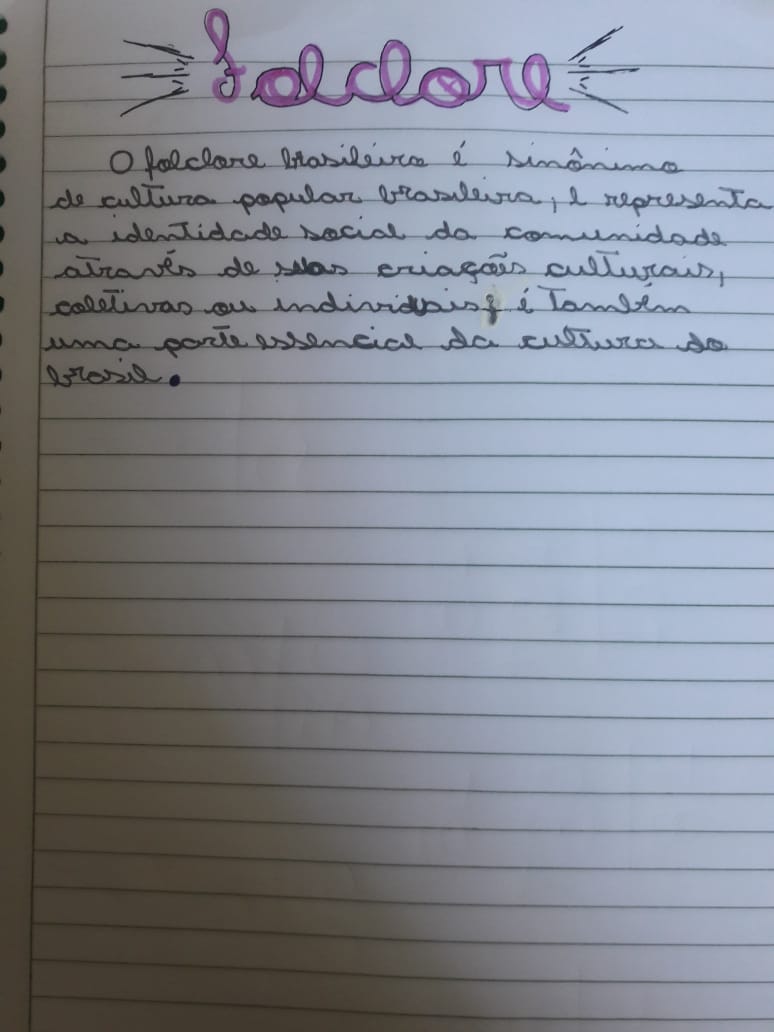 Folclore
O folclore brasileiro é sinônimo
de cultura popular brasileira, e representa
a identidade social da comunidade
através de suas criações culturais,
coletivas ou individuais; é também
uma parte essencial da cultura do
brasil.